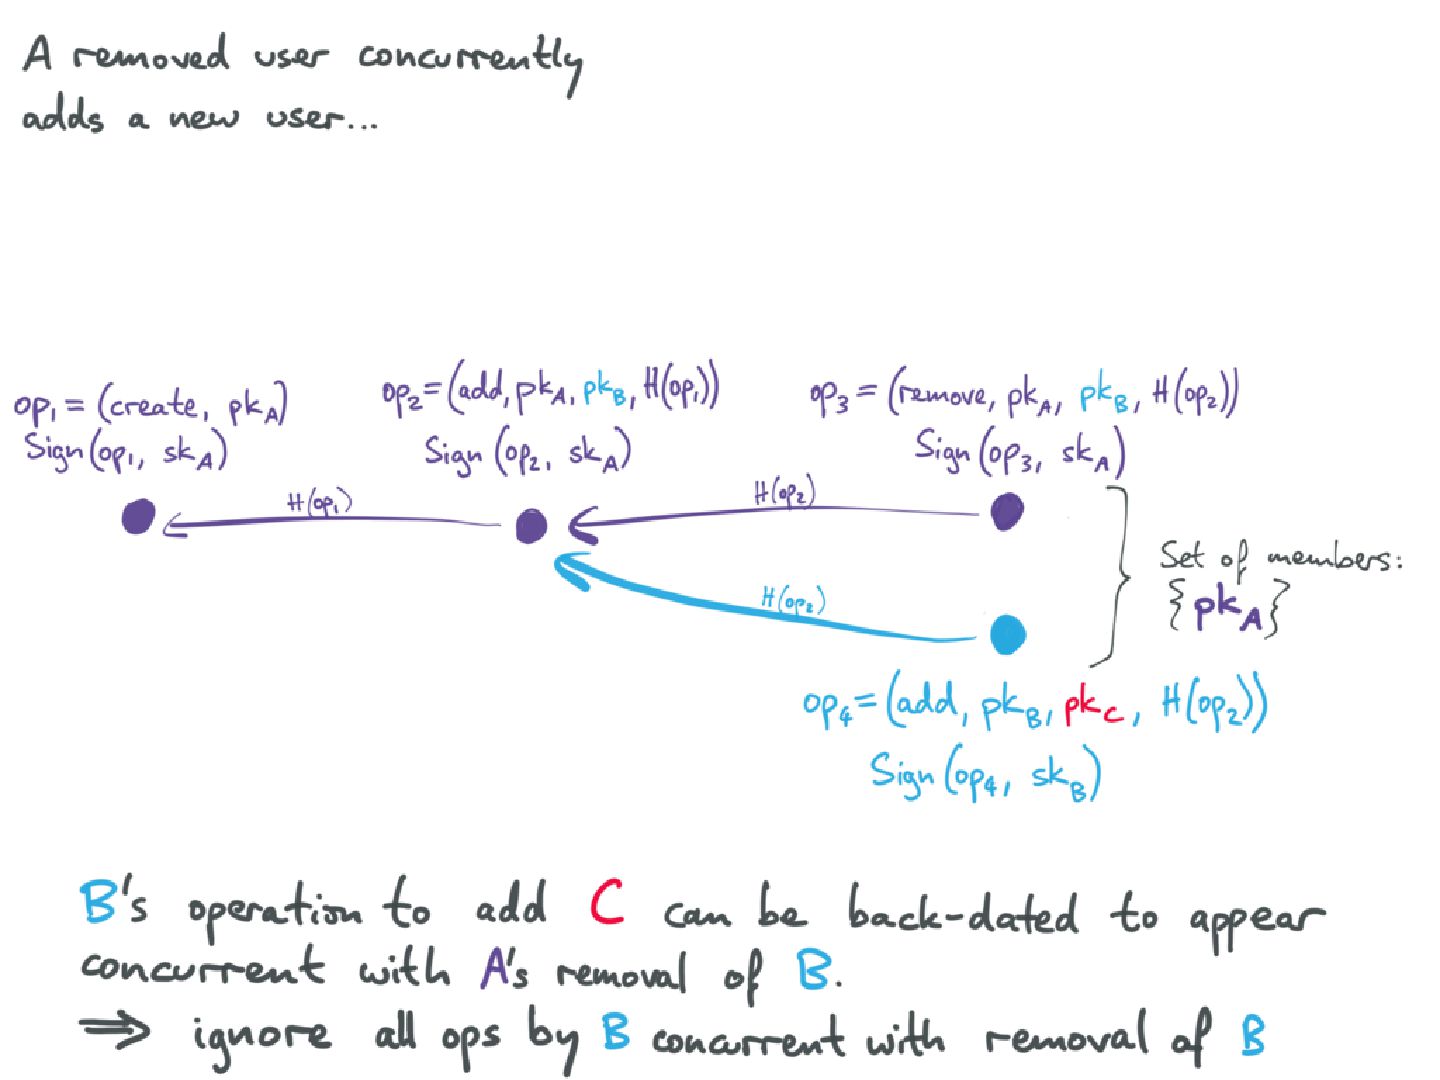 A removed user concurrently
adds a new user...
op₁ = (create, pk_A)
Sign(op₁, sk_A)
op₂ = (add, pk_A, pk_B, H(op₁))
Sign(op₂, sk_A)
op₃ = (remove, pk_A, pk_B, H(op₂))
Sign(op₃, sk_A)
H(op₁)
H(op₂)
H(op₂)
Set of members:
{pk_A}
op₄ = (add, pk_B, pk_C, H(op₂))
Sign(op₄, sk_B)
B's operation to add C can be back-dated to appear
concurrent with A's removal of B.
⇒ ignore all ops by B concurrent with removal of B